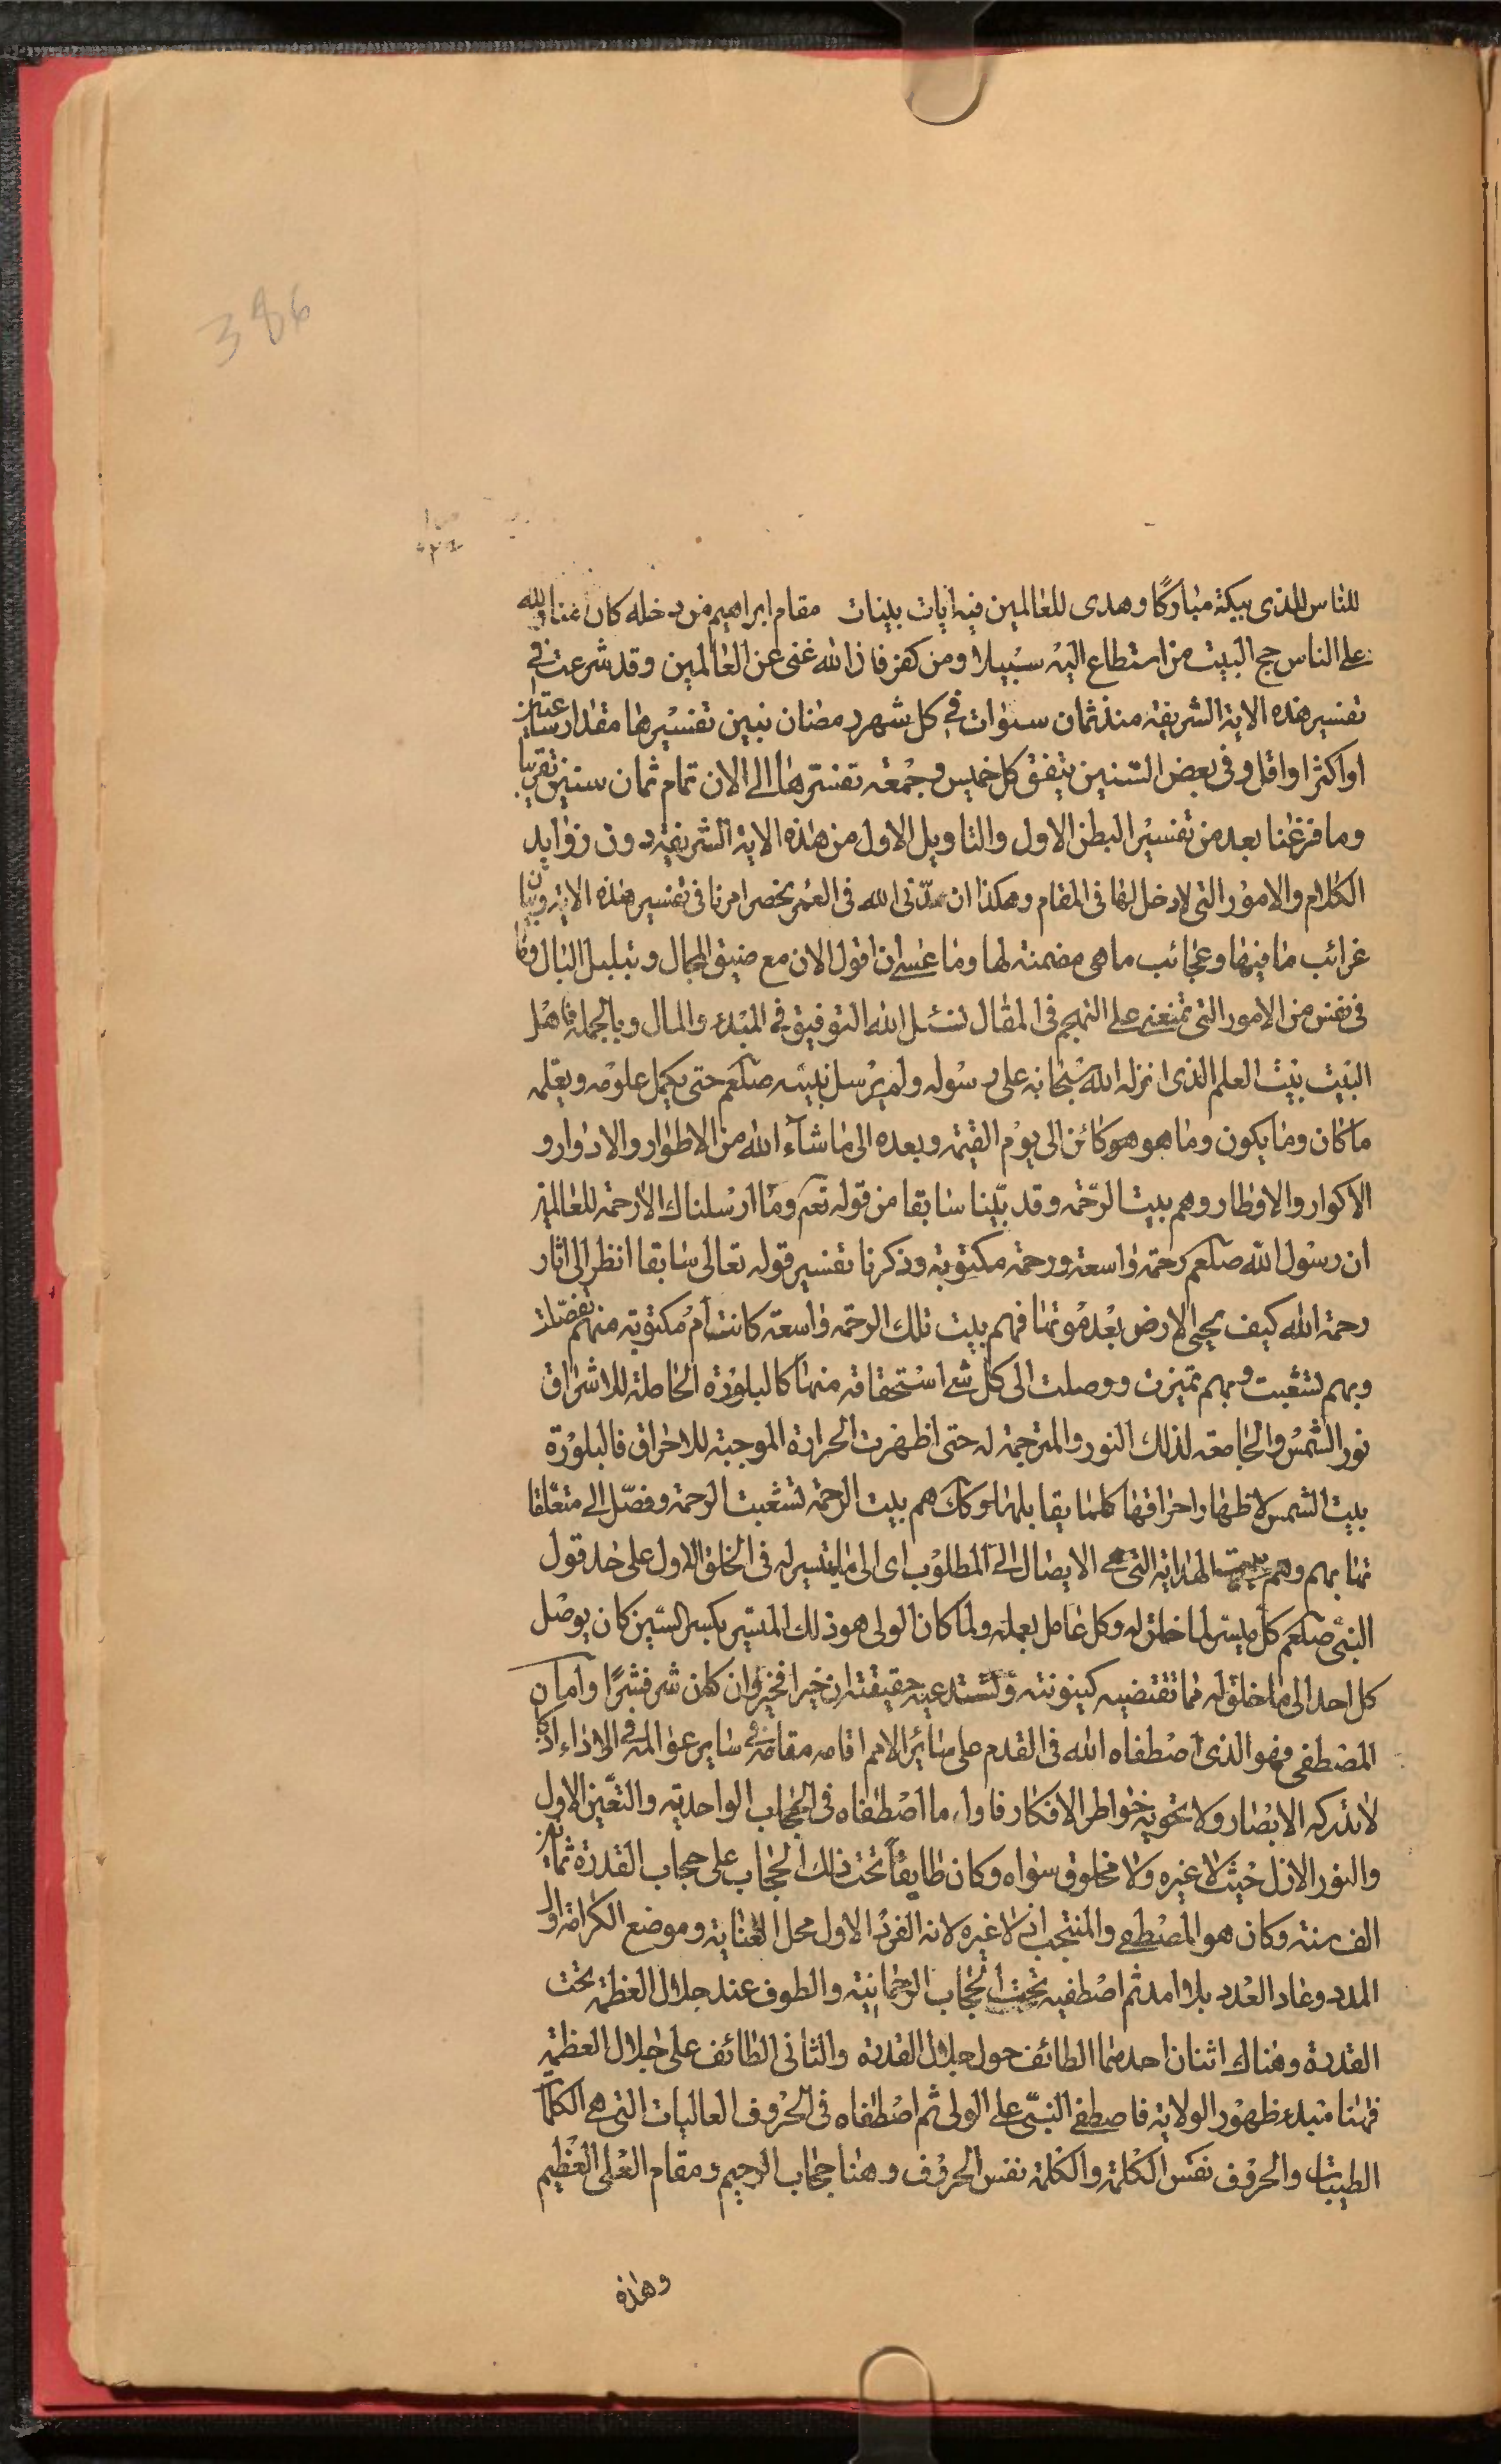 386
للناس للذی ببکة مبارکًا وهدی للعالمین فیه ایات بینات مقام ابراهیم من دخله کان امنا ولله
علی الناس حج البیت من استطاع الیه سبیلا ومن کفر فان الله غنی عن العالمین وقد شرعت فی
تفسیر هذه الایة الشریفة منذ ثمان سنوات فی کل شهر رمضان نبین تفسیرها مقدار ساعتین
او اکثر او اقل وفی بعض السنین یتفق کل خمیس وجمعه تفسیرها الی الان تمام ثمان سنین تقریبا
وما فرغنا بعد من تفسیر البطن الاول والتاویل الاول من هذه الایة الشریفة دون زواید
الکلام والامور التی لا دخل لها فی المقام وهکذا ان مدّنی الله فی العمر بخصر امرنا فی تفسیر هذه الایة وبیان
غرائب ما فیها وعجائب ما هی مضمنة لها وما عسی ان اقول الان مع ضیق المجال وتبلبل البال وما
فی نفس من الامور التی تمنعنی علی النهج فی المقال نسئل الله التوفیق فی المبدء والمال وبالجملة فاهل
البیت بیت العلم الذی انزله الله سبحانه علی رسوله ولم یرسل نبیه صلعم حتی یکمل علومه ویعلمه
ما کان وما یکون وما هو هو کائن الی یوم القیمة وبعده الی ما شآء الله من الاطوار والادوار و
الاکوار والاوطار وهم بیت الرّحمة وقد بیّنا سابقا من قوله تعم وما ارسلناك الا رحمة للعالمین
ان رسول الله صلعم رحمة واسعة ورحمة مکتوبة وذکرنا تفسیر قوله تعالی سابقا انظر الی اثار
رحمة الله کیف یحیی الارض بعد موتها فهم بیت تلك الرحمة واسعة کانت أم مکتوبة منهم تفصّلت
وبهم تشعبت وبهم تمیزت ووصلت الی کل شیء استحقاقه منها کالبلورة الحاملة للاشراق
نور الشمس والجامعة لذلك النور والمترجمة له حتی اظهرت الحرارة الموجبة للاحراق فالبلورة
بیت الشمس لاظهار احراقها کلما یقابلها وکك هم بیت الرحمة تشعبت الرحمة وفصّل الی متعلقا
تها بهم وهم بیت الهدایة التی هی الایصال الی المطلوب ای الی ما یتیسر له فی الخلق الاول علی حد قول
النبیّ صلعم کلّ میسر لما خلق له وکل عامل بعمله ولما کان الولی هو ذلك المیسّر بکسر السّین کان یوصل
کل احد الی ما خلق له مما تقتضیه کینونته وتستدعیه حقیقته ان خیرا فخیر وان کان شر فشرًا واما
المصطفی فهو الذی اصطفاه الله فی القدم علی سائر الامم اقامه مقامه فی سایر عوالمه فی الاداء اذ کان
لا تدرکه الابصار ولا تحویه خواطر الافکار فاول ما اصطفاه فی الحجاب الواحدیة والتعّین الاول
والنور الازل حیث لا غیره ولا مخلوق سواه وکان طایفًا تحت ذلك الحجاب علی حجاب القدرة ثمانین
الف سنة وکان هو المصطفی والمنتجب اذ لا غیره لانه الفرد الاول محل العنایة وموضع الکرامة اول
المدد وعاد العدد بلا امد ثم اصطفیه تحت الحجاب الرحمانیة والطوف عند جلال العظمة تحت
القدرة وهناك اثنان احدهما الطائف حول جلال القدرة والثانی الطائف علی جلال العظمة
فهنا مبدء ظهور الولایة فاصطفی النبیّ علی الولی ثم اصطفاه فی الحروف العالیات التی هی الکلما
الطیبات والحروف نفس الکلمة والکلمة نفس الحروف وهنا حجاب الرحیم ومقام العلی العظیم
وهذه